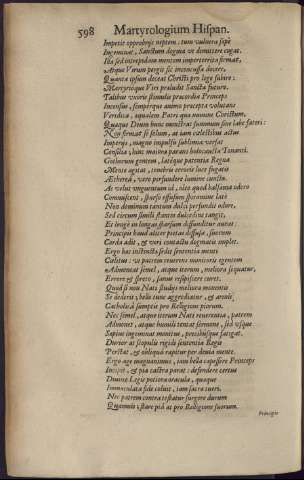 598 Martyrologium Hispan.
Impetit opprobrijs neptem, tum vulnera sępe
Ingeminat, Sanctum dogma ve demittere cogat.
Ista sed intrepidam mentem imperterrita firmat,
Atque Virum pergit sic inconcussa docere,
Quanta ipsum deceat Christi pro lege subire:
Martyriique Vias praeludit Sancta futuri.
Talibus victis stimulis praecordia Princeps
Incensus, semperque animo praecepta volutans
Veridica, aqualem Patri qua monent Christum,
Quaque Deum hunc monstrat summum sine labe fateri:
Non firmat se solum, at iam caelestibus actus
Imperijs, magno impulsu sublimia versat
Consilia, hinc maiora parans hodocausta Tonanti.
Gothorum gentem, latèque patentia Regna
Mente agitat, tenebris erroris luce fugatis
Ætherea, vero perfundere lumine cunctis.
At velut unguentum id, illes quod balsama odore
Commiscent, sparso effusum spiramine latè
Non dominum tantum dulci perfundit odore,
Sed circum simili stantes dulcedine tangit,
Et longè in longas sparsum diffunditur auras:
Principe haud aliter pietas diffusa, suorum
Corda adit, & veri contactu dogmatis implet.
Ergo hac instincta sedet sententia menti
Caelitus: ve patrem reverens monitoris egentem
Admoneat semel, atque iterum, meliora sequatur,
Errore & spreto, sanus resipiscere curet.
Quod si non Nati studijs meliora monentis
Se dederit; bello tunc aggrediatur, & armis
Catholica sumptis pro Religione piorum.
Nec semel, atque iterum Nati reverentia, patrem
Admonet, atque humili tentat sermone, sed usque
Sapius ingeminat monitus, precibusque fatigat.
Durior at scopulis rigidi sententia Regis
Perstat, & obliquâ rapitur per devia mente.
Ergo age magnanimus, iam bella capessere Princeps
Incipit, & pia castra parat: defendere certus
Divina Legis potiora oracula, quaque
Immaculata fide coluit, iam sacra tueri.
Nec patrem contra testatur surgere durum
Quamvis; stare pià at pro Religione suorum.
Principis